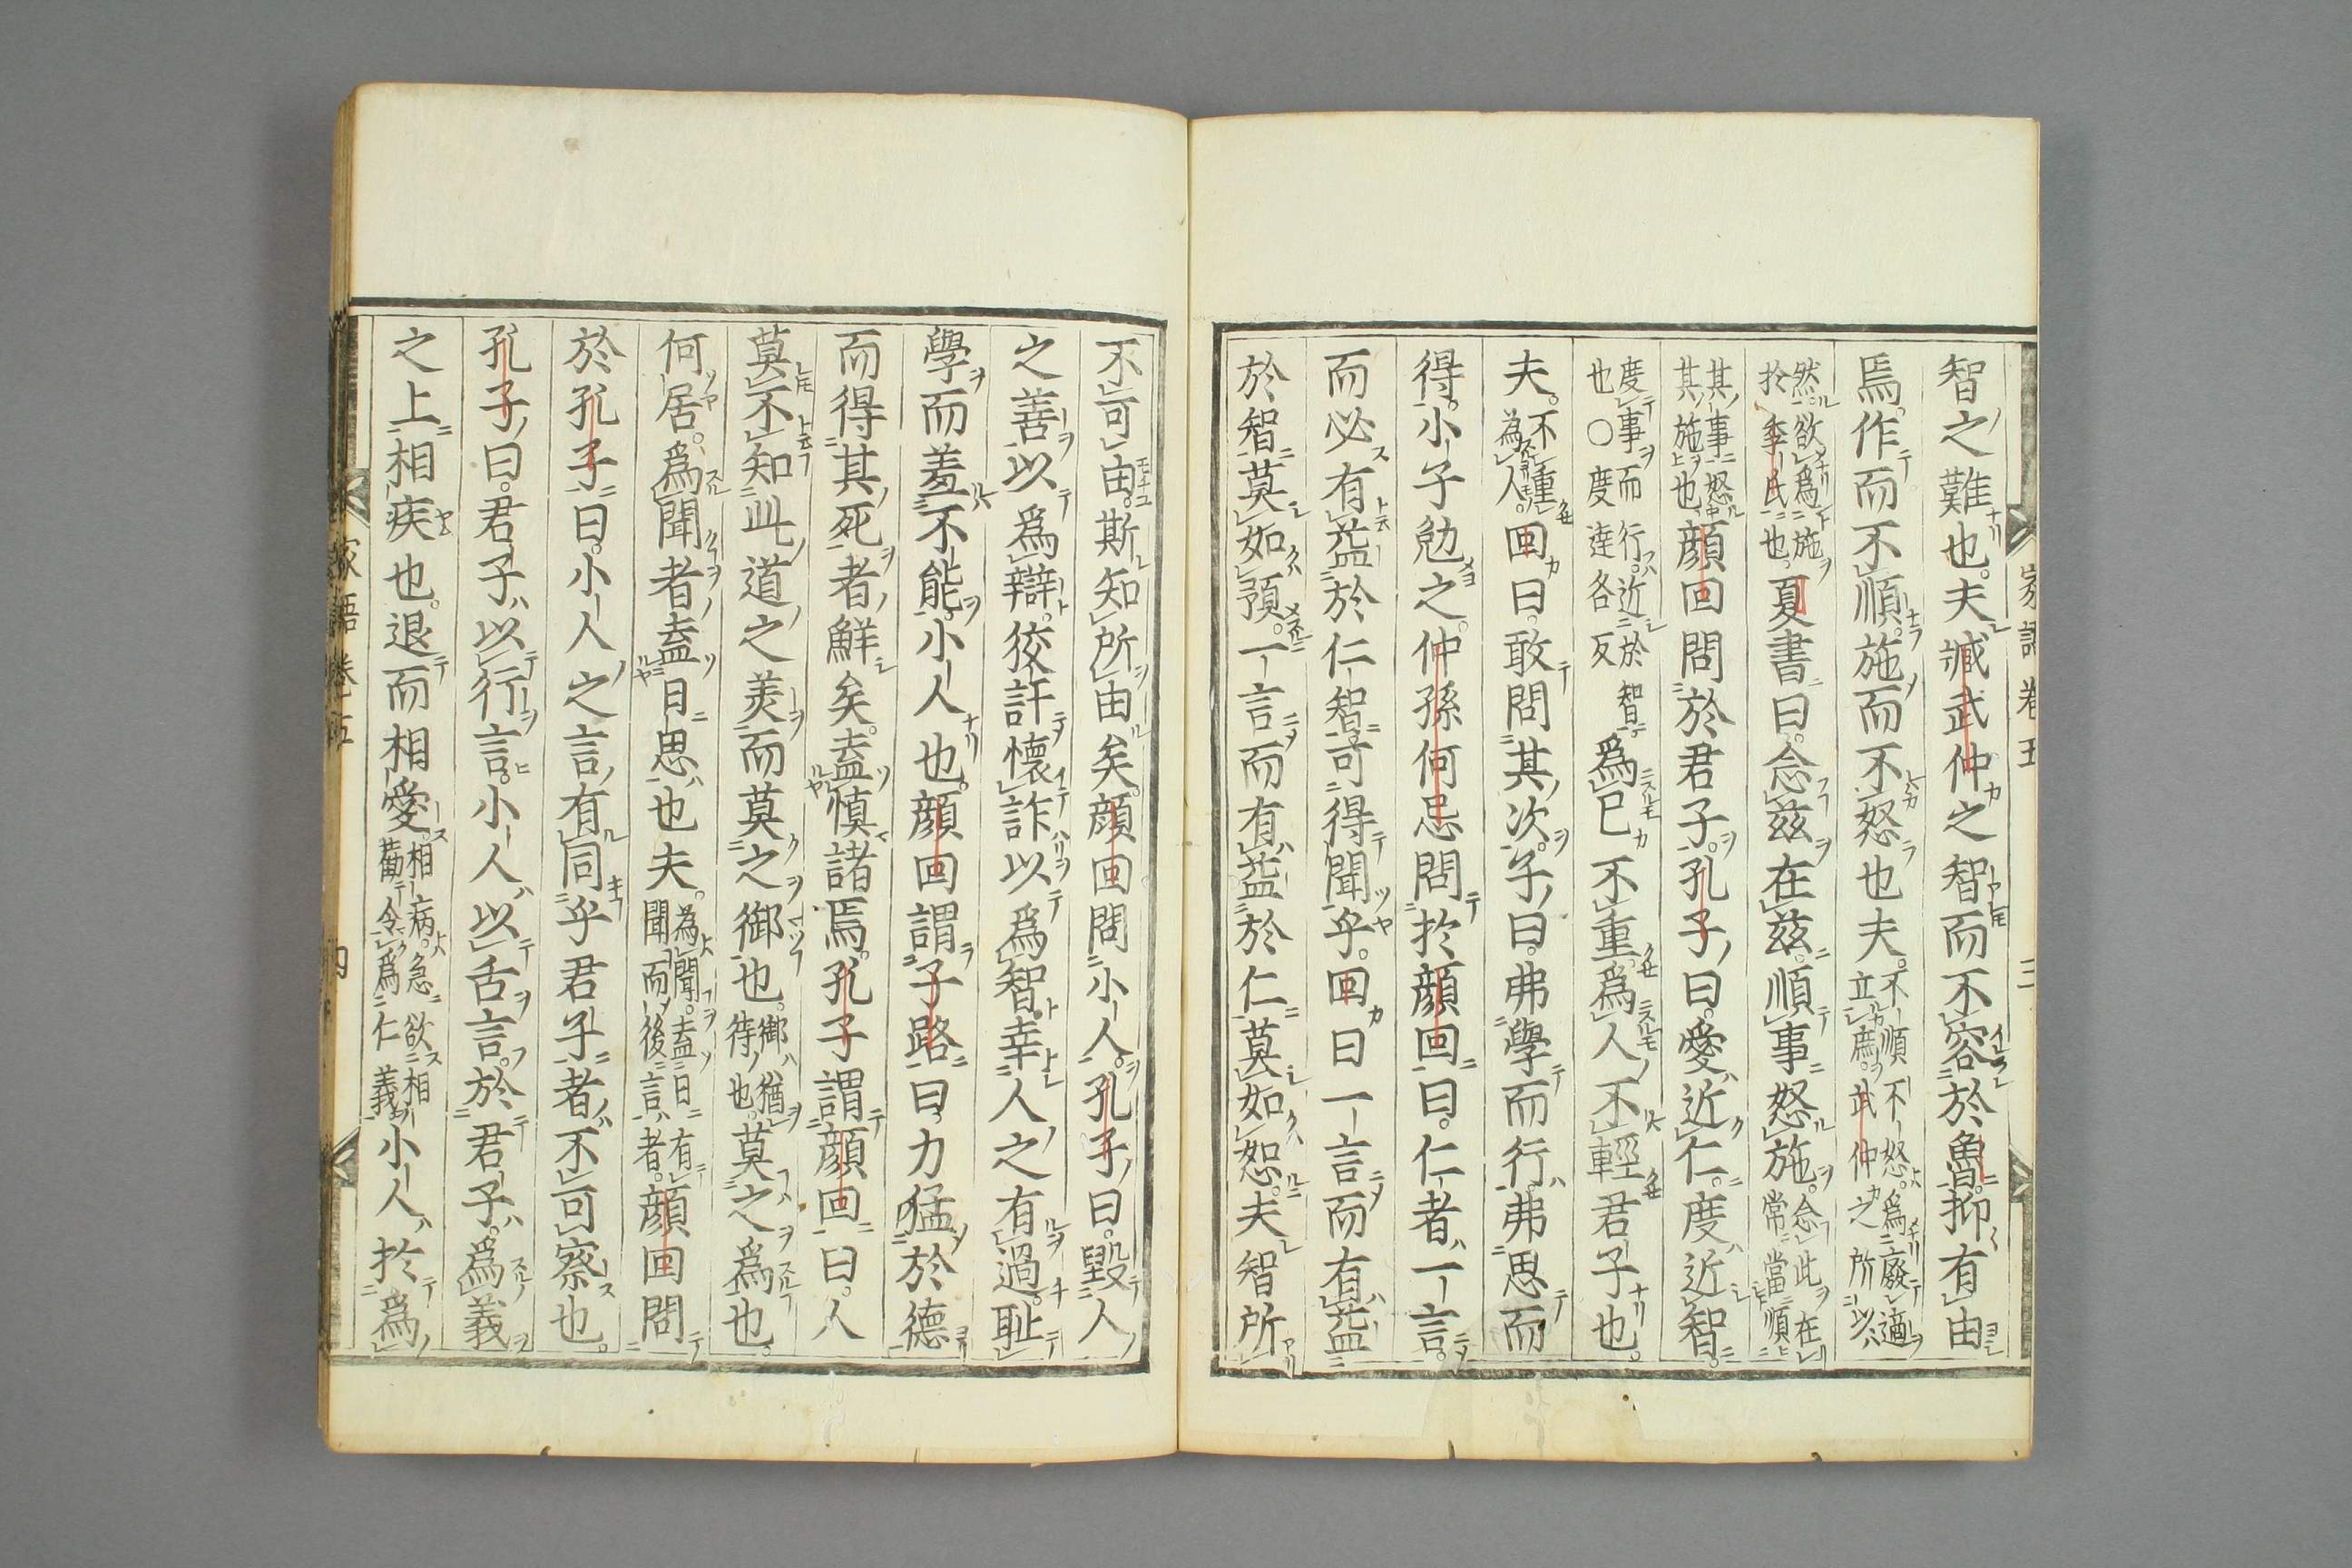 智之難也。夫臧武仲之智而不容於魯。抑有由
焉。作而不順。施而不怒也夫。不順不怒。爲廢適立庶。武仲之所以
然。欲爲施於季氏也。夏書曰。念茲在茲。順事怒施。念此在常當順
其事怒其施也。顔回問於君子。孔子曰。愛近仁。度近智。
度事而行。近於智也○度達各反爲已不重。爲人不輕君子也
夫。不重為人。回曰。敢問其次。子曰。弗學而行。弗思而
得。小子勉之。仲孫何忌問於顔回曰。仁者一言。
而必有益於仁智。可得聞乎。回曰一言而有益
於智。莫如預。一言而有益於仁。莫如恕。夫智所
家語卷五 三
不可由。斯知所由矣。顔回問小人。孔子曰。毀人
之善以爲辯。狡訐懷詐以爲智。幸人之有過。恥
學而羞不能。小人也。顔回謂子路曰。力猛於德
而得其死者鮮矣。盍慎諸焉。孔子謂顔回曰。人
莫不知此道之美而莫之御也。御猶待也。莫之爲也。
何居。爲聞者盍日思也夫。為聞。盍日有聞而後言者。顔回問
於孔子曰。小人之言。有同乎君子者。不可察也。
孔子曰。君子以行言。小人以舌言。於君子。爲義
之上相疾也。退而相愛。相病。急欲相勸令爲仁義小人。於爲
家語卷五 四